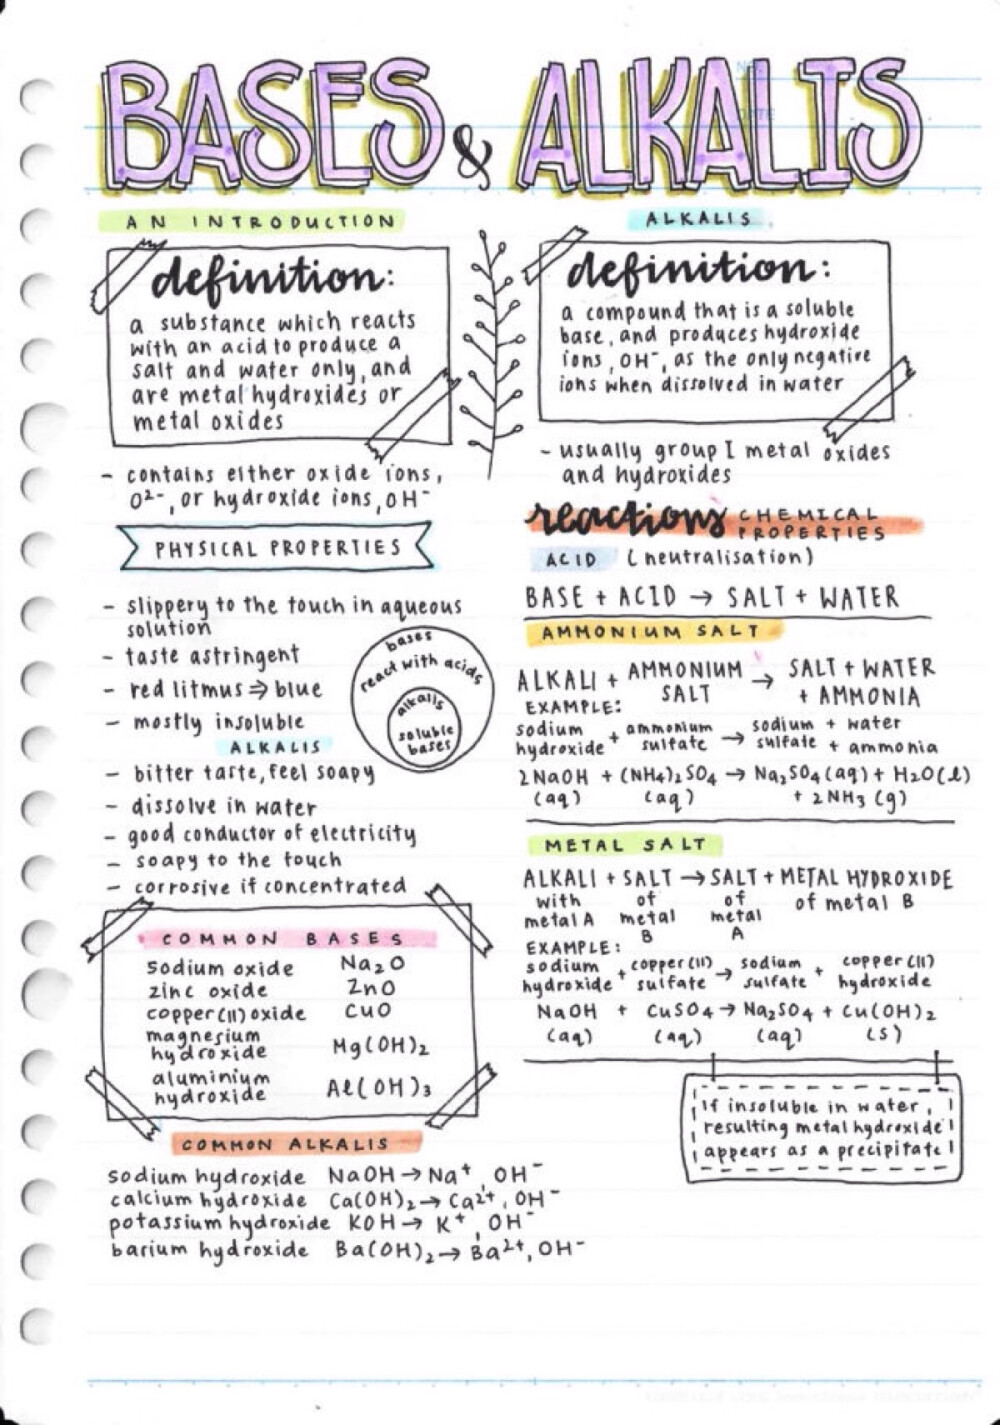 BASES & ALKALIS
AN INTRODUCTION
definition:
a substance which reacts
with an acid to produce a
salt and water only, and
are metal hydroxides or
metal oxides
- contains either oxide ions,
O²⁻, or hydroxide ions, OH⁻
PHYSICAL PROPERTIES
- slippery to the touch in aqueous
solution
- taste astringent
- red litmus ⇒ blue
- mostly insoluble
bases
react with acids
alkalis
soluble
bases
ALKALIS
- bitter taste, feel soapy
- dissolve in water
- good conductor of electricity
- soapy to the touch
- corrosive if concentrated
COMMON BASES
sodium oxide Na₂O
zinc oxide ZnO
copper(II) oxide CuO
magnesium
hydroxide Mg(OH)₂
aluminium
hydroxide Al(OH)₃
COMMON ALKALIS
sodium hydroxide NaOH → Na⁺, OH⁻
calcium hydroxide Ca(OH)₂ → Ca²⁺, OH⁻
potassium hydroxide KOH → K⁺, OH⁻
barium hydroxide Ba(OH)₂ → Ba²⁺, OH⁻
ALKALIS
definition:
a compound that is a soluble
base, and produces hydroxide
ions, OH⁻, as the only negative
ions when dissolved in water
- usually group I metal oxides
and hydroxides
reactions CHEMICAL
PROPERTIES
ACID (neutralisation)
BASE + ACID → SALT + WATER
AMMONIUM SALT
ALKALI + AMMONIUM SALT → SALT + WATER
+ AMMONIA
EXAMPLE:
sodium hydroxide + ammonium sulfate → sodium sulfate + water
+ ammonia
2NaOH + (NH₄)₂SO₄ → Na₂SO₄(aq) + H₂O(l)
(aq) (aq) + 2NH₃(g)
METAL SALT
ALKALI + SALT → SALT + METAL HYDROXIDE
with of of of metal B
metal A metal metal
B A
EXAMPLE:
sodium copper(II) sodium copper(II)
hydroxide + sulfate → sulfate + hydroxide
NaOH + CuSO₄ → Na₂SO₄ + Cu(OH)₂
(aq) (aq) (aq) (s)
If insoluble in water,
resulting metal hydroxide
appears as a precipitate